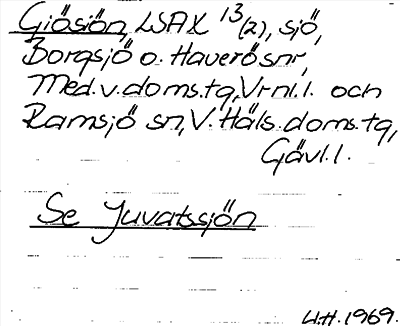 Gjösjön, LSAX 13(2), sjö,
Borgsjö o. Haverö snr,
Med.v.doms.tg, Vrnl.l. och
Ramsjö sn, V. Häls. doms.tg,
Gävl.l.
Se Juvatssjön
U.H. 1969.